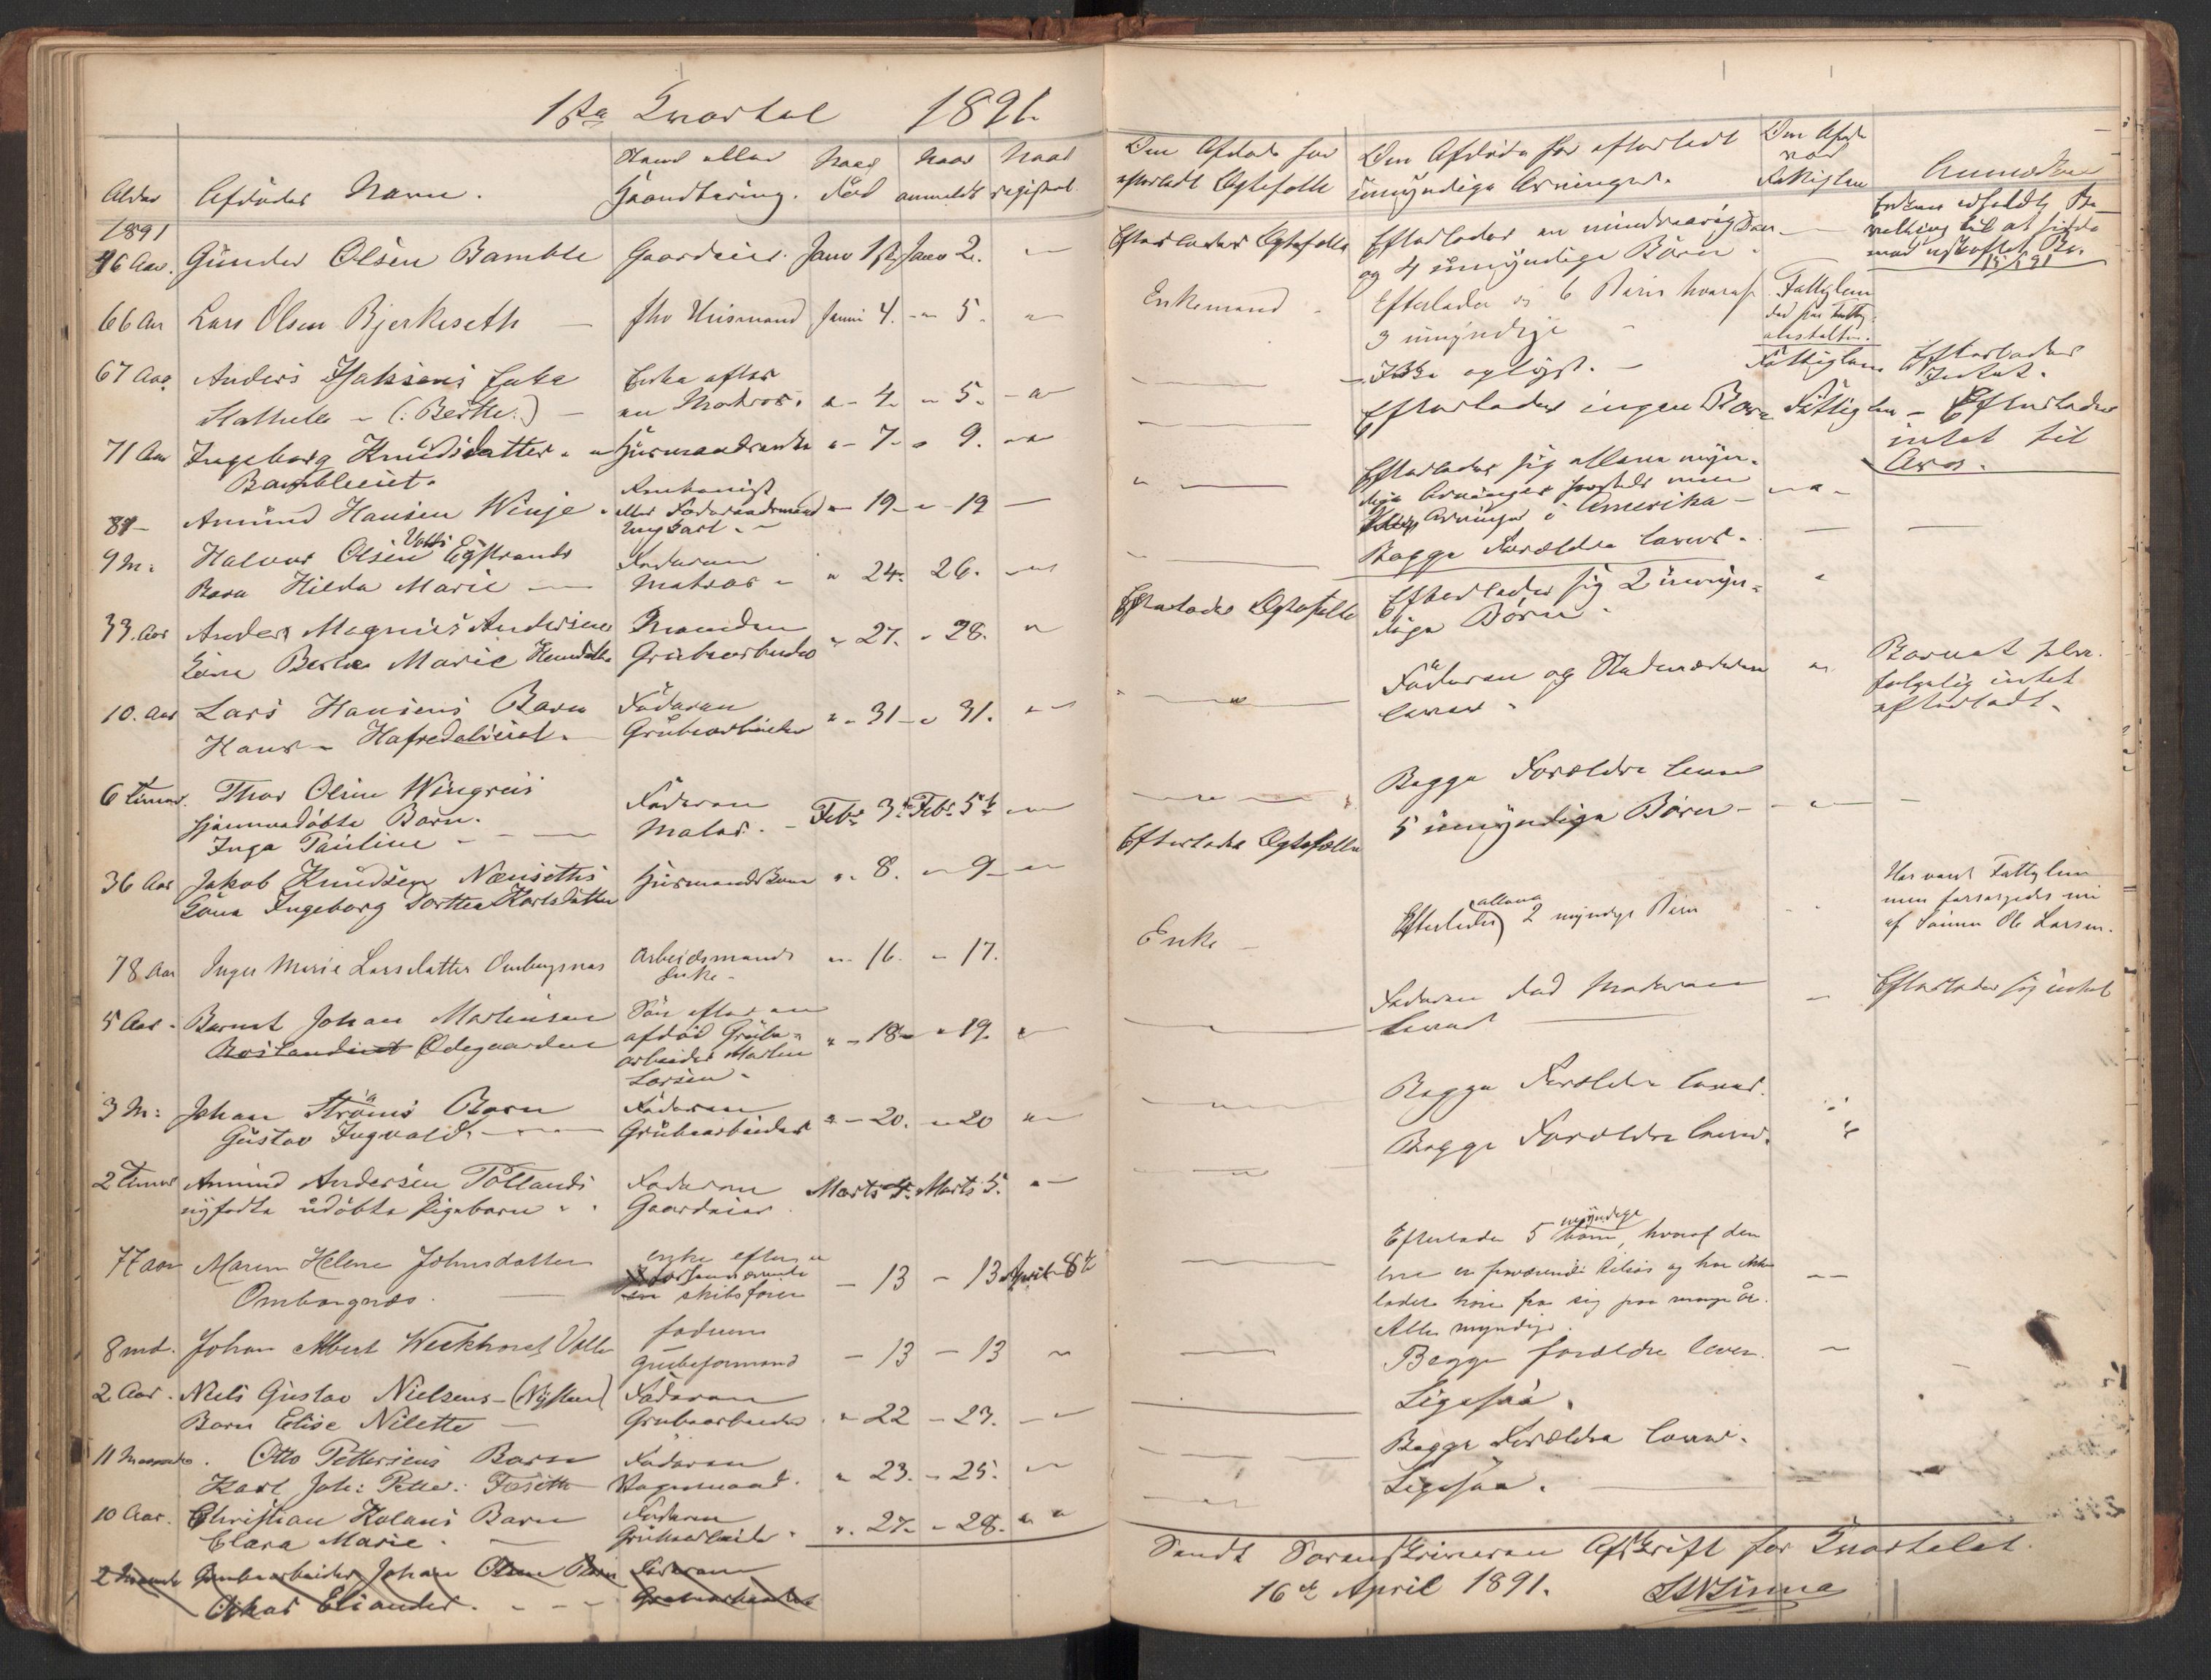 1ste Qvartal 1891.
Alder Afdødes Navn. Stand eller Haandtering. Naar død Naar anmeldt Naar registret
1891
46 Aar. Gunder Olsen Bamble Gaardeier. Janr 1ste Janr 2. "
66 Aar Lars Olsen Bjerkeseth fhv Huusmand Januar 4. " 5. "
67 Aar Anders Isaksens Enke Enke efter
Kathule - (: Berthe :) en Matros. " 4. " 5. "
71 Aar Ingeborg Knudsdatter Huusmandsenke " 7. " 9. "
Bambleeiet.
Amund Hansen Winje " 19 " 19
Ungkarl
9 M: Halvor Olsen Valbi Egstrands Faderen
Barn Hilda Marie Matros " 24. 26. "
33. Aar Anders Magnus Andersens Manden
Kone Berthe Marie Grubearbeider " 27. " 28. "
10. Aar Lars Hansens Barn Faderen
Hans - Hafredaleiet. Grubearbeider " 31 " 31. "
6 Timer. Thor Olsen Wingreis Faderen
hjemmedøbte Barn. Maler. Febr. 3de Febr. 5te
Inga Pauline
36 Aar Jakob Knudsen Næuseths Huusmandskone " 8. " 9 "
Kone Ingeborg Dorthea Karlsdatter
78 Aar Inger Marie Larsdatter Ombergsnes Arbeidsmands " 16. " 17.
Enke
5 Aar. Bernt Johan Martinsen Søn efter en
Ødegaarden afdød Grube-
arbeider Martin " 18 " 19. "
Larsen
3 M: Johan Strøms Barn Faderen
Gustav Ingvald. Grubearbeider " 20. " 20 "
2 Timer Amund Andersen Tollands Faderen Marts 4. Marts 5. "
nyfødte udøbte Pigebarn Gaardeier
77 aar Maren Helene Johnsdatter enke efter
Ombergsnes skibsfører 13 13 April 8de
8 md. Johan Albert Weekhorst Valle faderen
Grubeformand 13 13 "
2 Aar. Niels Gustav Nielsens (Nystrand) Faderen
Barn Elise Nilette Grubearbeider " 22 " 23. "
11 Maaneder. Otto Pettersens Barn Faderen
Karl Joh: Petter: Føseth " 23. " 25. "
10 Aar. Christian Kolans Barn Faderen
Clara Marie. Grubearbeider " 27. " 28. "
2 Maaneder Grubearbeider Johan Olsens Barn Faderen
Oskar Eliander. Grubearbeider
Om Afdøde har efterladt Ægtefælle Om Afdøde har efterladt umyndige Arvinger. Om Afdøde var Fattiglem Anmærkn
Efterlader Ægtefælle Efterlader en mindreaarig Søn
og 4 umyndige Børn
Enken udfærdt Be
villing til at sidde
med uskiftet Bo.
Enkemand Efterlader sig 6 Børn hvoraf Fattiglem
3 umyndige
Ikke oplyst. Fattiglem Efterlader
Intet.
Efterlader ingen Børn Fattiglem Efterlader
intet til
Arv.
Efterlader sig allene myn-
dige Arvinger
Arvinger i Amerika
Begge Forældre lever.
Efterlader Ægtefælle Efterlader sig 2 umyn-
dige Børn
Faderen og Stedmoderen
lever. Barnet selv
følgelig intet
efterladt.
Begge Forældre lever
Efterlader Ægtefælle 5 umyndige Børn
Enke Efterlader allene 2 myndige Børn Har været Fattiglem
men forsørgedes nu
af Sønnen Ole Larsen.
Faderen død Moderen
lever Efterlader sig intet
Begge Forældre lever.
Begge Forældre lever.
Efterlader 5 myndige børn, hvoraf den
ene er fraværende tilsøs og har ikke
ladet høre fra sig paa mange år.
Alle myndige.
Begge forældre lever.
Ligesaa.
Begge Forældre lever.
Ligesaa.
Sendt Sorenskriveren Afskrift for Qvartalet.
16de April 1891.